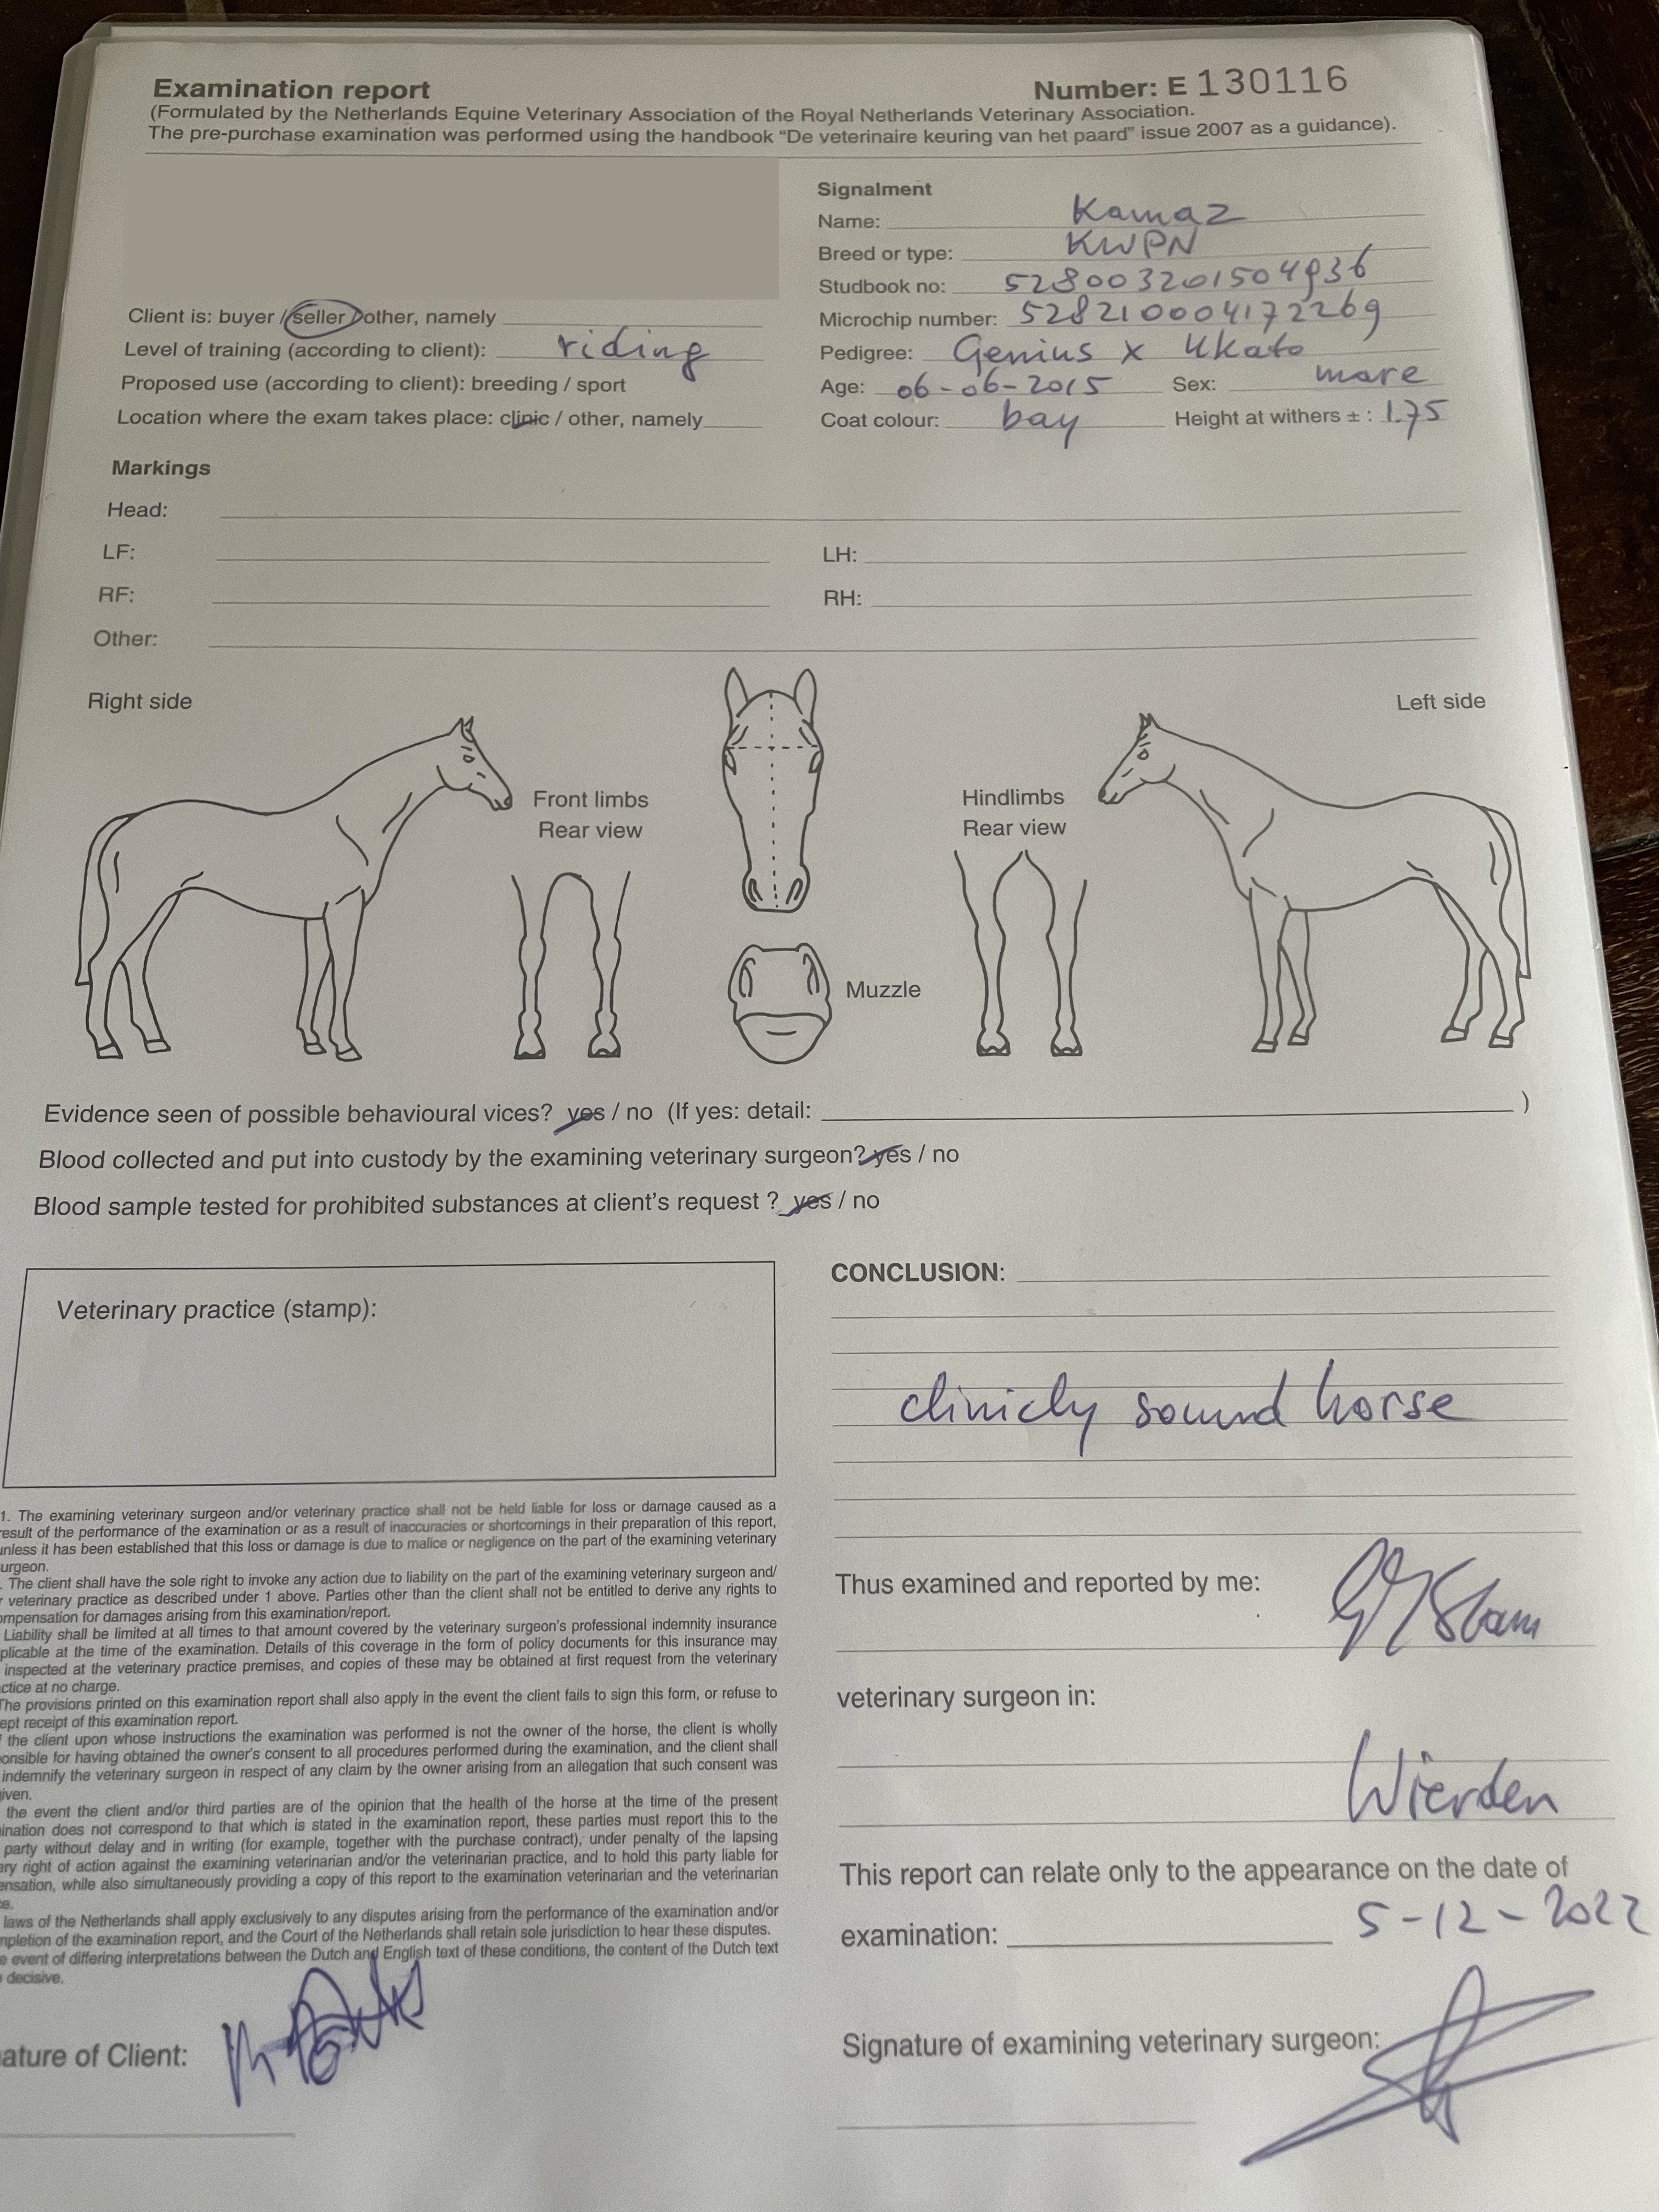 Examination report
Number: E 130116
(Formulated by the Netherlands Equine Veterinary Association of the Royal Netherlands Veterinary Association.
The pre-purchase examination was performed using the handbook “De veterinaire keuring van het paard” issue 2007 as a guidance).
Client is: buyer / seller / other, namely
Level of training (according to client): riding
Proposed use (according to client): breeding / sport
Location where the exam takes place: clinic / other, namely
Signalment
Name: Kamaz
Breed or type: KWPN
Studbook no: 528003201504936
Microchip number: 528210004172269
Pedigree: Genius x Ukato
Age: 06-06-2015 Sex: mare
Coat colour: bay Height at withers ± : 1.75
Markings
Head:
LF: LH:
RF: RH:
Other:
Right side
Left side
Front limbs
Rear view
Hindlimbs
Rear view
Muzzle
Evidence seen of possible behavioural vices? yes / no (If yes: detail: )
Blood collected and put into custody by the examining veterinary surgeon? yes / no
Blood sample tested for prohibited substances at client's request ? yes / no
Veterinary practice (stamp):
1. The examining veterinary surgeon and/or veterinary practice shall not be held liable for loss or damage caused as a
result of the performance of the examination or as a result of inaccuracies or shortcomings in their preparation of this report,
unless it has been established that this loss or damage is due to malice or negligence on the part of the examining veterinary
urgeon.
. The client shall have the sole right to invoke any action due to liability on the part of the examining veterinary surgeon and/
r veterinary practice as described under 1 above. Parties other than the client shall not be entitled to derive any rights to
ompensation for damages arising from this examination/report.
Liability shall be limited at all times to that amount covered by the veterinary surgeon's professional indemnity insurance
plicable at the time of the examination. Details of this coverage in the form of policy documents for this insurance may
inspected at the veterinary practice premises, and copies of these may be obtained at first request from the veterinary
ctice at no charge.
The provisions printed on this examination report shall also apply in the event the client fails to sign this form, or refuse to
ept receipt of this examination report.
f the client upon whose instructions the examination was performed is not the owner of the horse, the client is wholly
onsible for having obtained the owner's consent to all procedures performed during the examination, and the client shall
indemnify the veterinary surgeon in respect of any claim by the owner arising from an allegation that such consent was
iven.
the event the client and/or third parties are of the opinion that the health of the horse at the time of the present
ination does not correspond to that which is stated in the examination report, these parties must report this to the
party without delay and in writing (for example, together with the purchase contract), under penalty of the lapsing
ery right of action against the examining veterinarian and/or the veterinarian practice, and to hold this party liable for
ensation, while also simultaneously providing a copy of this report to the examination veterinarian and the veterinarian
ce.
laws of the Netherlands shall apply exclusively to any disputes arising from the performance of the examination and/or
mpletion of the examination report, and the Court of the Netherlands shall retain sole jurisdiction to hear these disputes.
e event of differing interpretations between the Dutch and English text of these conditions, the content of the Dutch text
decisive.
ature of Client:
CONCLUSION:
clinicly sound horse
Thus examined and reported by me:
veterinary surgeon in:
Wierden
This report can relate only to the appearance on the date of
examination: 5-12-2022
Signature of examining veterinary surgeon: